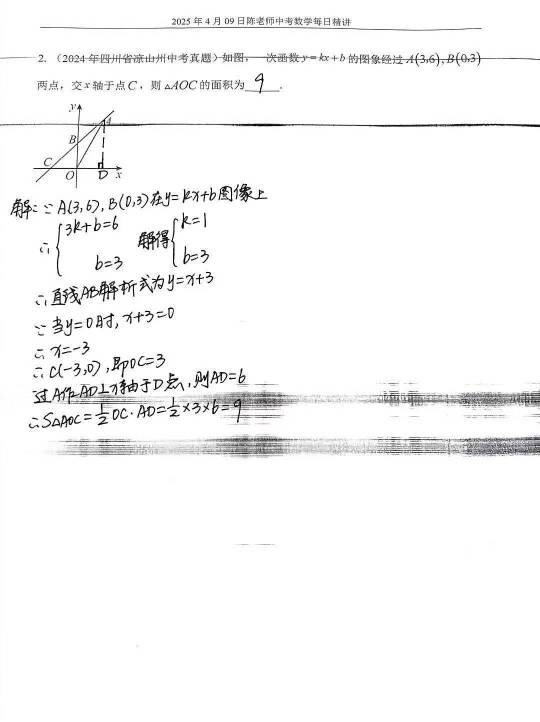 2025 年 4 月 09 日陈老师中考数学每日精讲
2. (2024 年四川省凉山州中考真题) 如图,一次函数 y=kx+b 的图象经过 A(3,6),B(0,3)
两点,交 x 轴于点 C,则 △AOC 的面积为 9 .
y
A
B
C
O D x
解:∵ A(3,6), B(0,3)在y=kx+b图像上
∴ { 3k+b=6 解得 { k=1
b=3 b=3
∴ 直线AB解析式为y=x+3
∵ 当y=0时, x+3=0
∴ x=-3
∴ C(-3,0), 即OC=3
过A作AD⊥x轴于D点, 则AD=6
∴ S△AOC=1/2 OC·AD=1/2×3×6=9